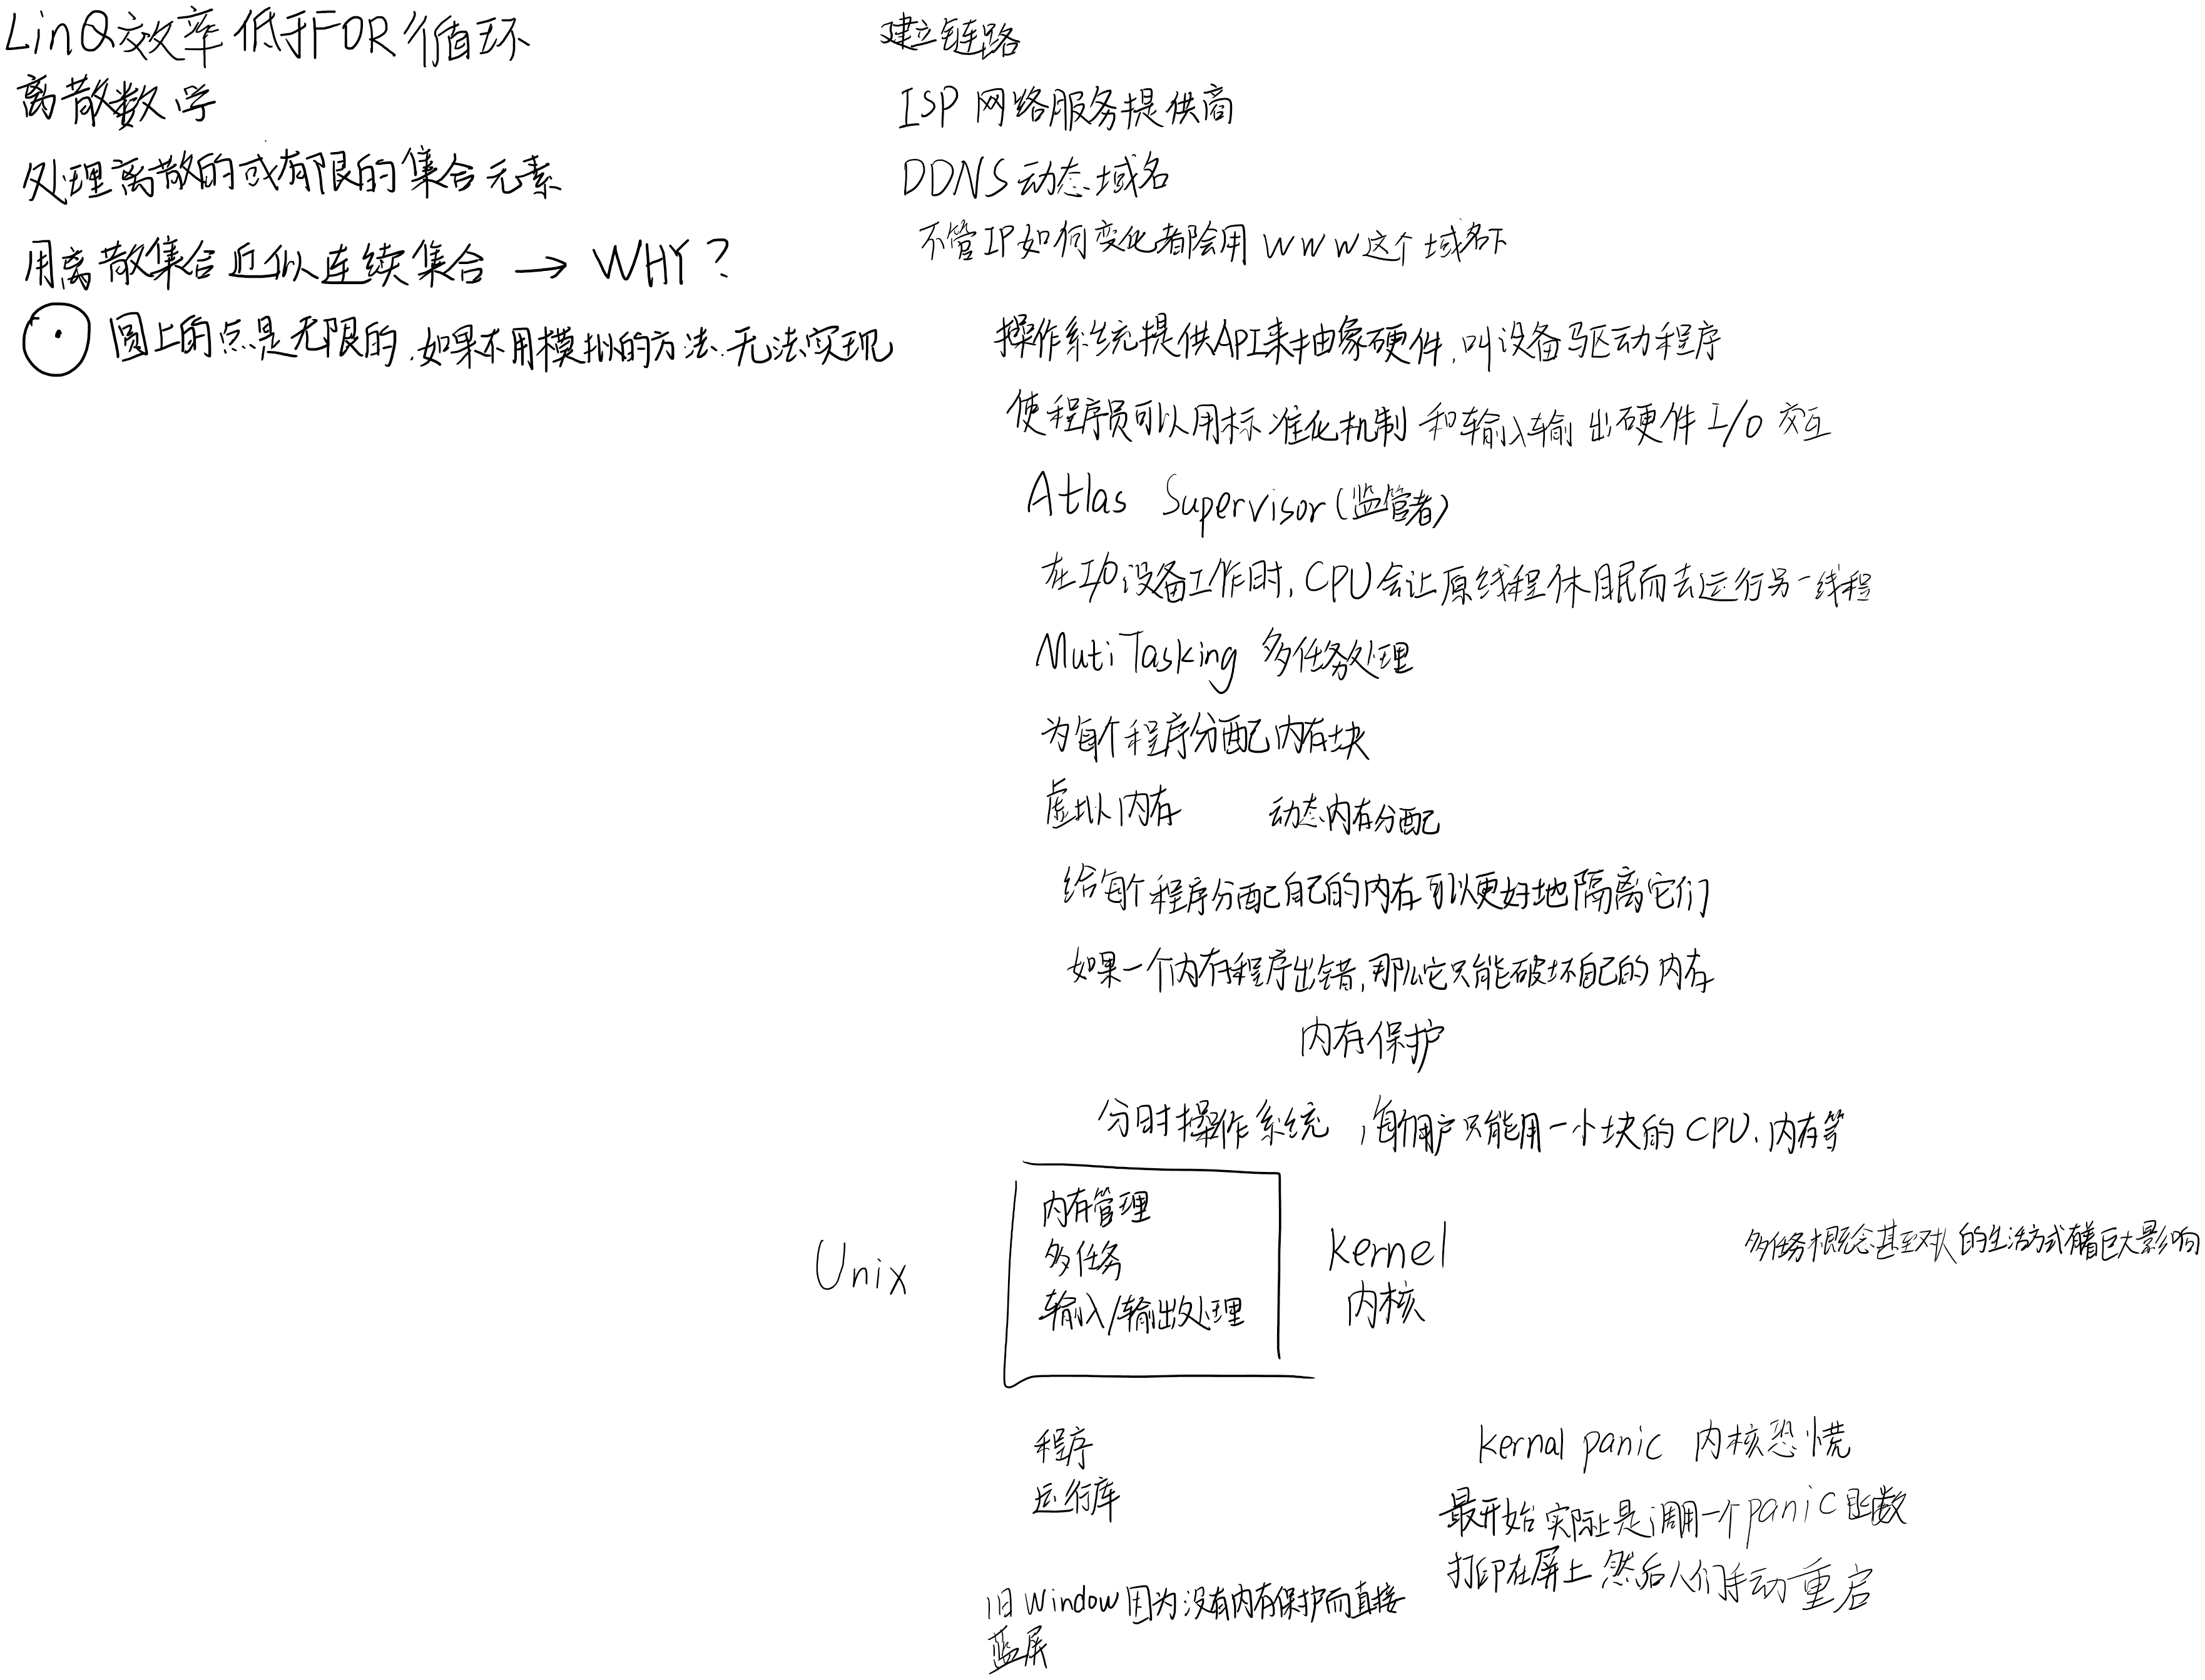 LinQ效率低于FOR循环
离散数学
处理离散的或有限的集合元素
用离散集合近似连续集合 → WHY？
圆上的点是无限的,如果不用模拟的方法.无法实现
建立链路
ISP 网络服务提供商
DDNS 动态域名
不管IP如何变化都会用 www这个域名下
操作系统提供API来抽象硬件,叫设备驱动程序
使程序员可以用标准化机制和输入输出硬件 I/O 交互
Atlas Supervisor(监管者)
在I/O设备工作时,CPU会让原线程休眠而去运行另一线程
MutiTasking 多任务处理
为每个程序分配内存块
虚拟内存 动态内存分配
给每个程序分配自己的内存可以更好地隔离它们
如果一个内存程序出错,那么它只能破坏自己的内存
内存保护
分时操作系统 ,每个用户只能用一小块的CPU、内存等
Unix
内存管理
多任务
输入/输出处理
kernel
内核
多任务概念甚至对人的生活方式有着巨大影响
程序
运行库
kernal panic 内核恐慌
最开始实际上是调用一个panic函数
打印在屏上 然后人们手动重启
旧Window因为没有内存保护而直接
蓝屏